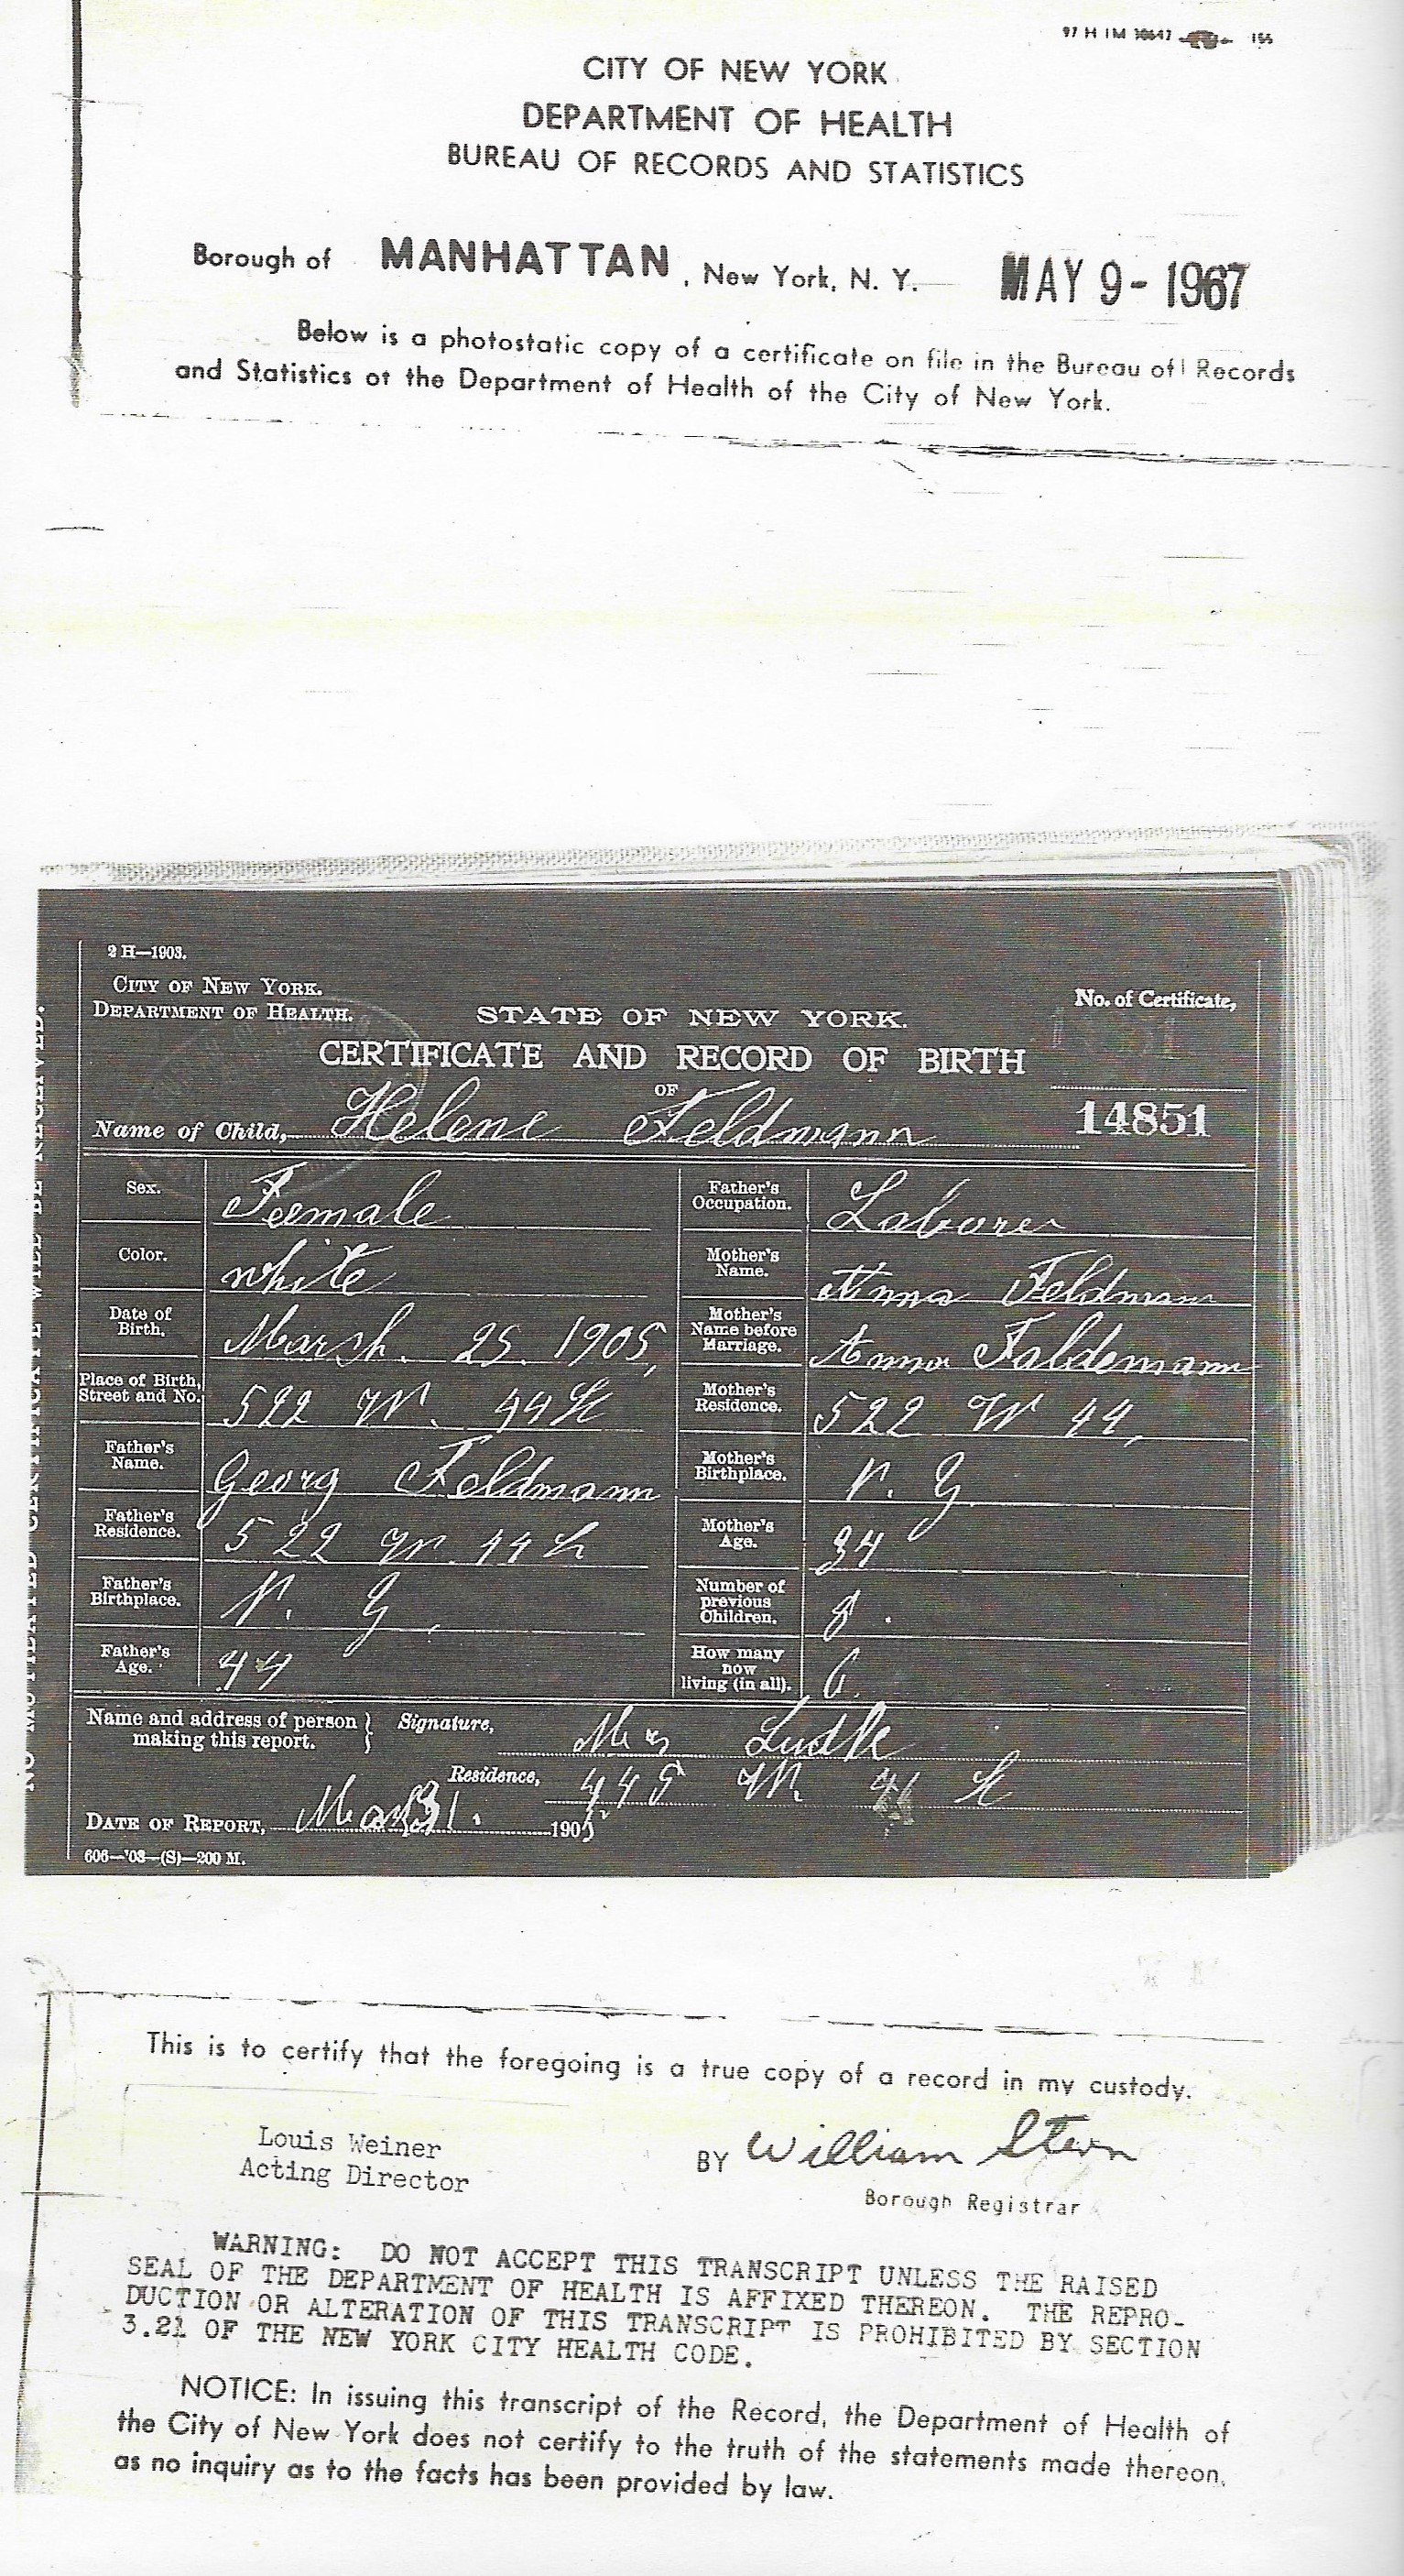 97 H 1M 155
CITY OF NEW YORK
DEPARTMENT OF HEALTH
BUREAU OF RECORDS AND STATISTICS
Borough of MANHATTAN, New York, N. Y. MAY 9 - 1967
Below is a photostatic copy of a certificate on file in the Bureau of Records
and Statistics of the Department of Health of the City of New York.
2 H—1903.
CITY OF NEW YORK.
DEPARTMENT OF HEALTH.
STATE OF NEW YORK.
No. of Certificate,
CERTIFICATE AND RECORD OF BIRTH
OF
Name of Child, Helene Feldmann 14851
Sex. Feemale
Father's Occupation. Laborer
Color. white
Mother's Name. Anna Feldmann
Date of Birth. Marsh. 25. 1905,
Mother's Name before Marriage. Anna Faldemann
Place of Birth, Street and No. 522 W. 44 St
Mother's Residence. 522 W 44,
Father's Name. Georg Feldmann
Mother's Birthplace. N. Y.
Father's Residence. 522 W. 44 St
Mother's Age. 34
Father's Birthplace. N. Y.
Number of previous Children. 8.
Father's Age. 44
How many now living (in all). 6
Name and address of person making this report. } Signature, Mrs Ludke
Residence, 445 W. St
DATE OF REPORT, 31. 1905
606—'03—(S)—200 M.
NO MUTILATED CERTIFICATE WILL BE RECEIVED.
This is to certify that the foregoing is a true copy of a record in my custody.
Louis Weiner
Acting Director
BY William Stern
Borough Registrar
WARNING: DO NOT ACCEPT THIS TRANSCRIPT UNLESS THE RAISED
SEAL OF THE DEPARTMENT OF HEALTH IS AFFIXED THEREON. THE REPRO-
DUCTION OR ALTERATION OF THIS TRANSCRIPT IS PROHIBITED BY SECTION
3.21 OF THE NEW YORK CITY HEALTH CODE.
NOTICE: In issuing this transcript of the Record, the Department of Health of
the City of New York does not certify to the truth of the statements made thereon,
as no inquiry as to the facts has been provided by law.